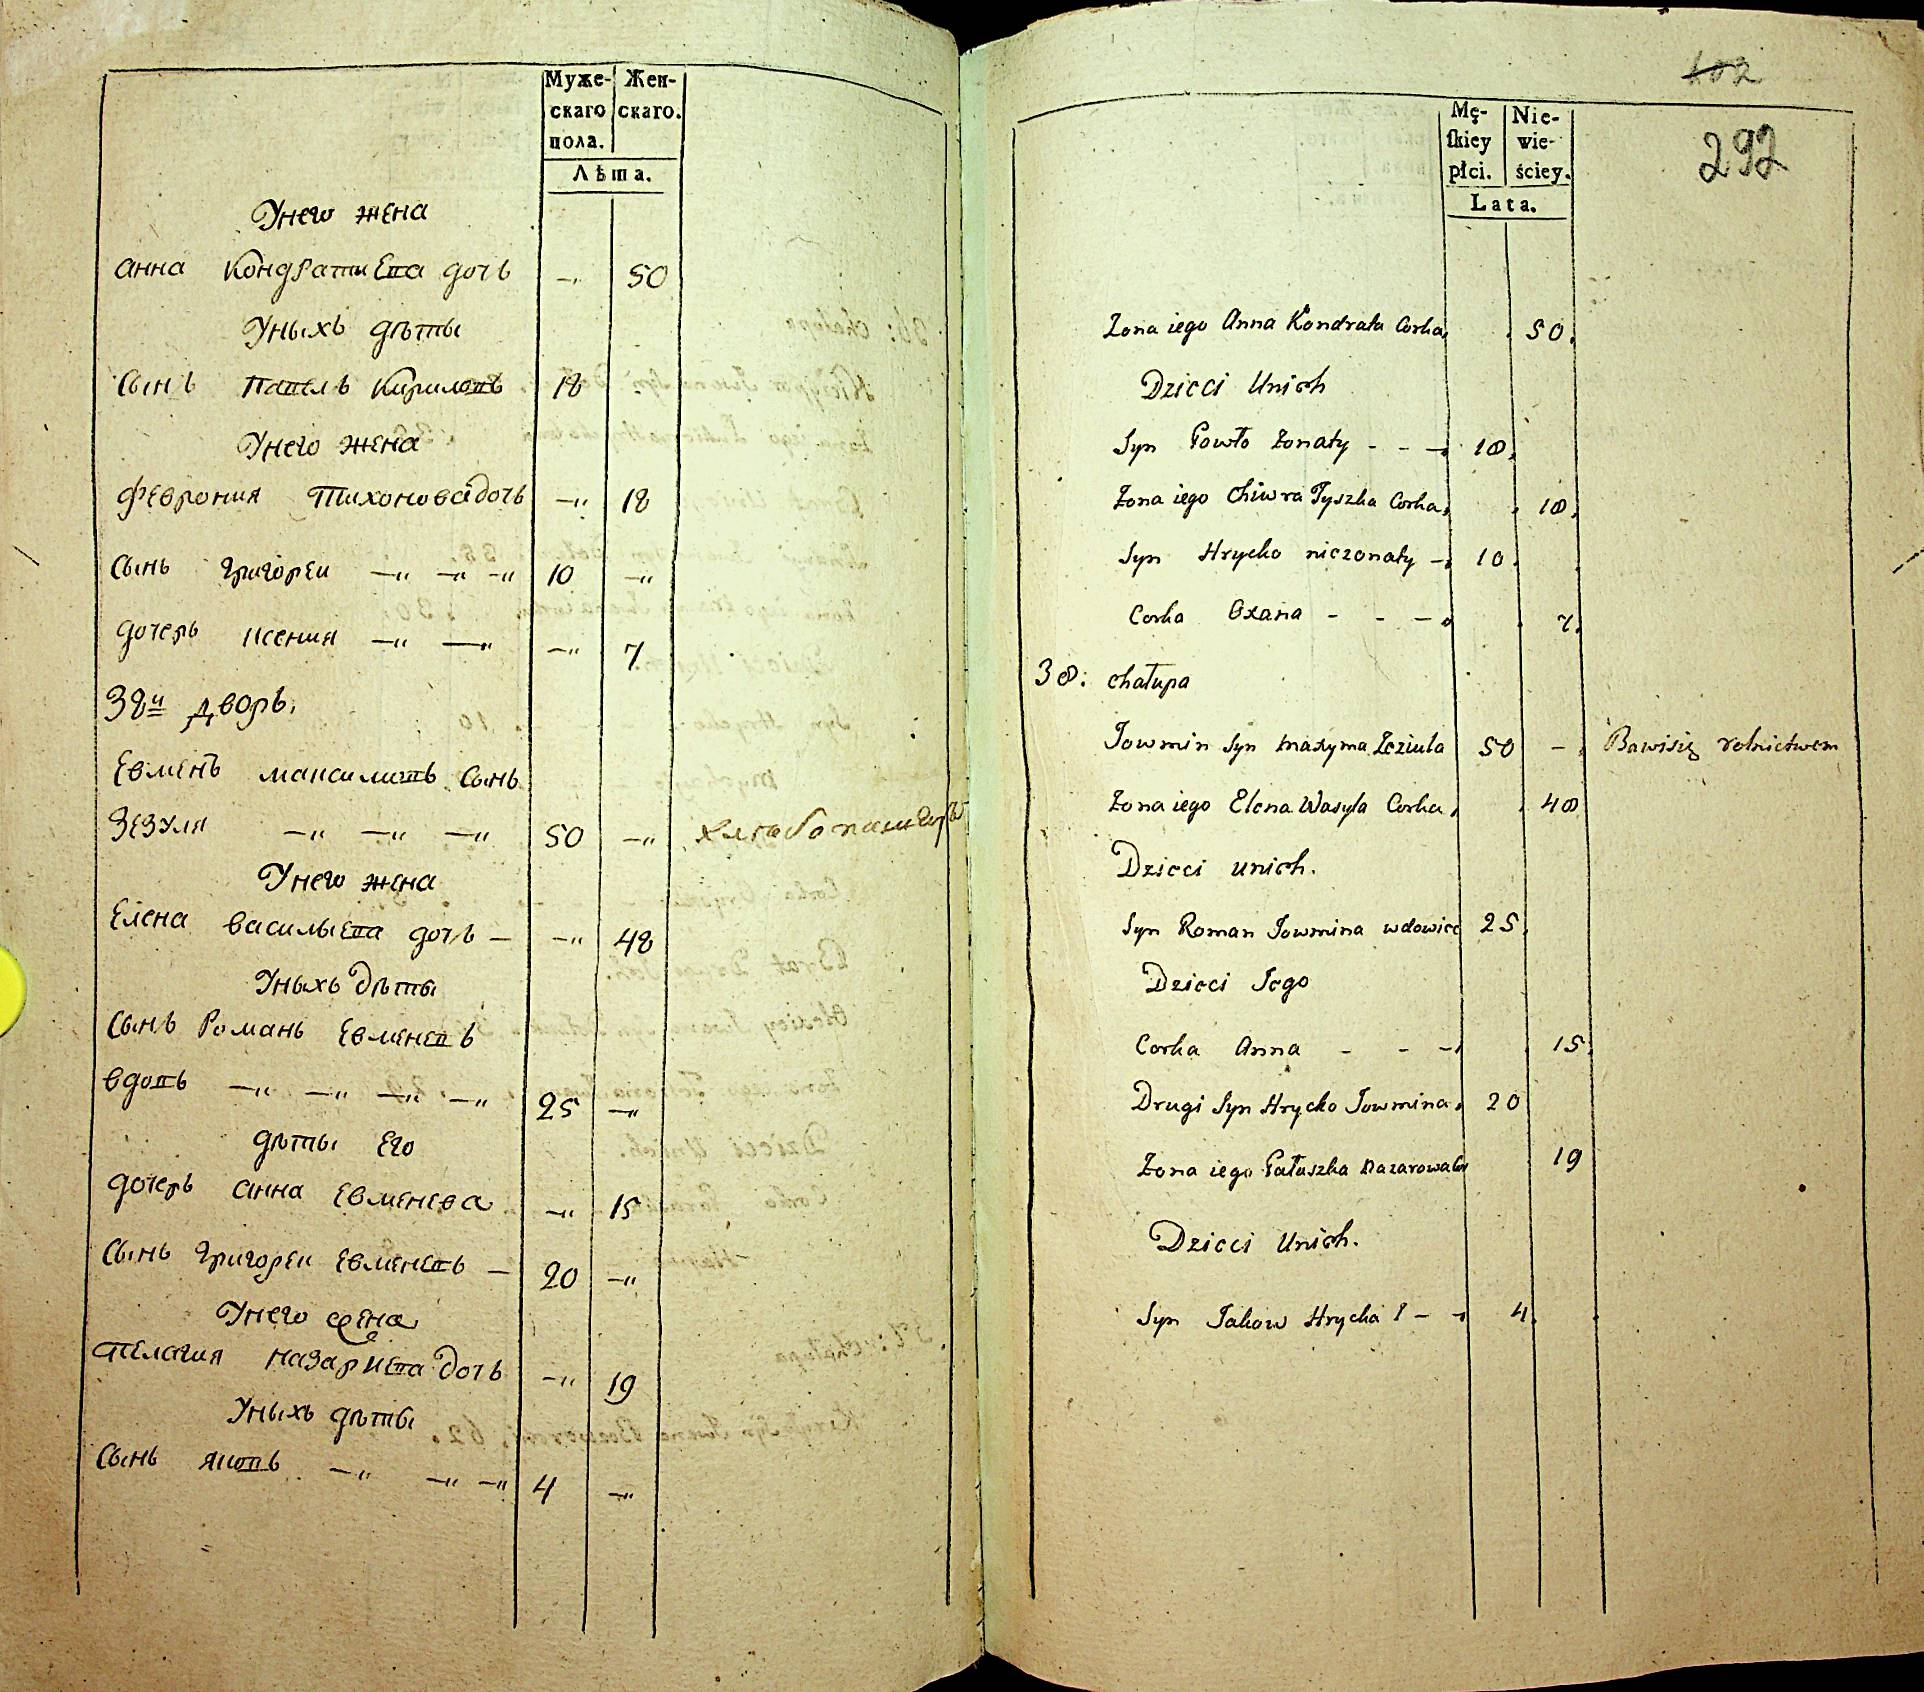 Муже- Жен-
скаго скаго.
пола.
Лѣта.
Унего жена
анна Кондратиева дочь —„ 50
Уныхъ дѣты
Сынъ Павелъ Кириловъ 18
Унего жена
Феврония Тихонова дочь —„ 18
Сынъ григореи —„ —„ —„ 10 —„
дочерь ксения —„ —„ —„ 7
38й дворъ.
Евменъ максимивъ Сынъ
Зезуля —„ —„ —„ 50 —„ хлѣбопашецъ
Унего жена
Елена василыева дочь — —„ 48
Уныхъ дѣты
Сынъ Романъ Евменевъ
вдовъ —„ —„ —„ —„ 25 —„
дѣты Его
дочерь анна Евменева —„ 15
Сынъ григореи Евменевъ — 20 —„
Унего жена
Пелагия назариева дочь —„ 19
Уныхъ дѣты
Сынъ яковъ —„ —„ —„ 4 —„
102
292
Mę- Nie-
ſkiey wie-
płci. ściey.
Lata.
Zona iego Anna Kondrata Corka. . 50.
Dzieci Unich
Syn Pawło Zonaty - - - 18.
Zona iego Chiwra Tyszka Corka. . 18.
Syn Hrycko niezonaty - 10. .
Corka Oxana - - - . 7.
38. chałupa
Jowmin Syn maxyma Zeziula 50 - . Bawisię rolnictwem
Zona iego Elena Wasyla Corka. . 48
Dzieci unich.
Syn Roman Jowmina wdowiec 25.
Dzieci Jego
Corka Anna - - - . 15.
Drugi Syn Hrycko Jowmina. 20
Zona iego Pałuszka Nazarowa 19
Dzieci Unich.
Syn Jakow Hrycka - - 4. .